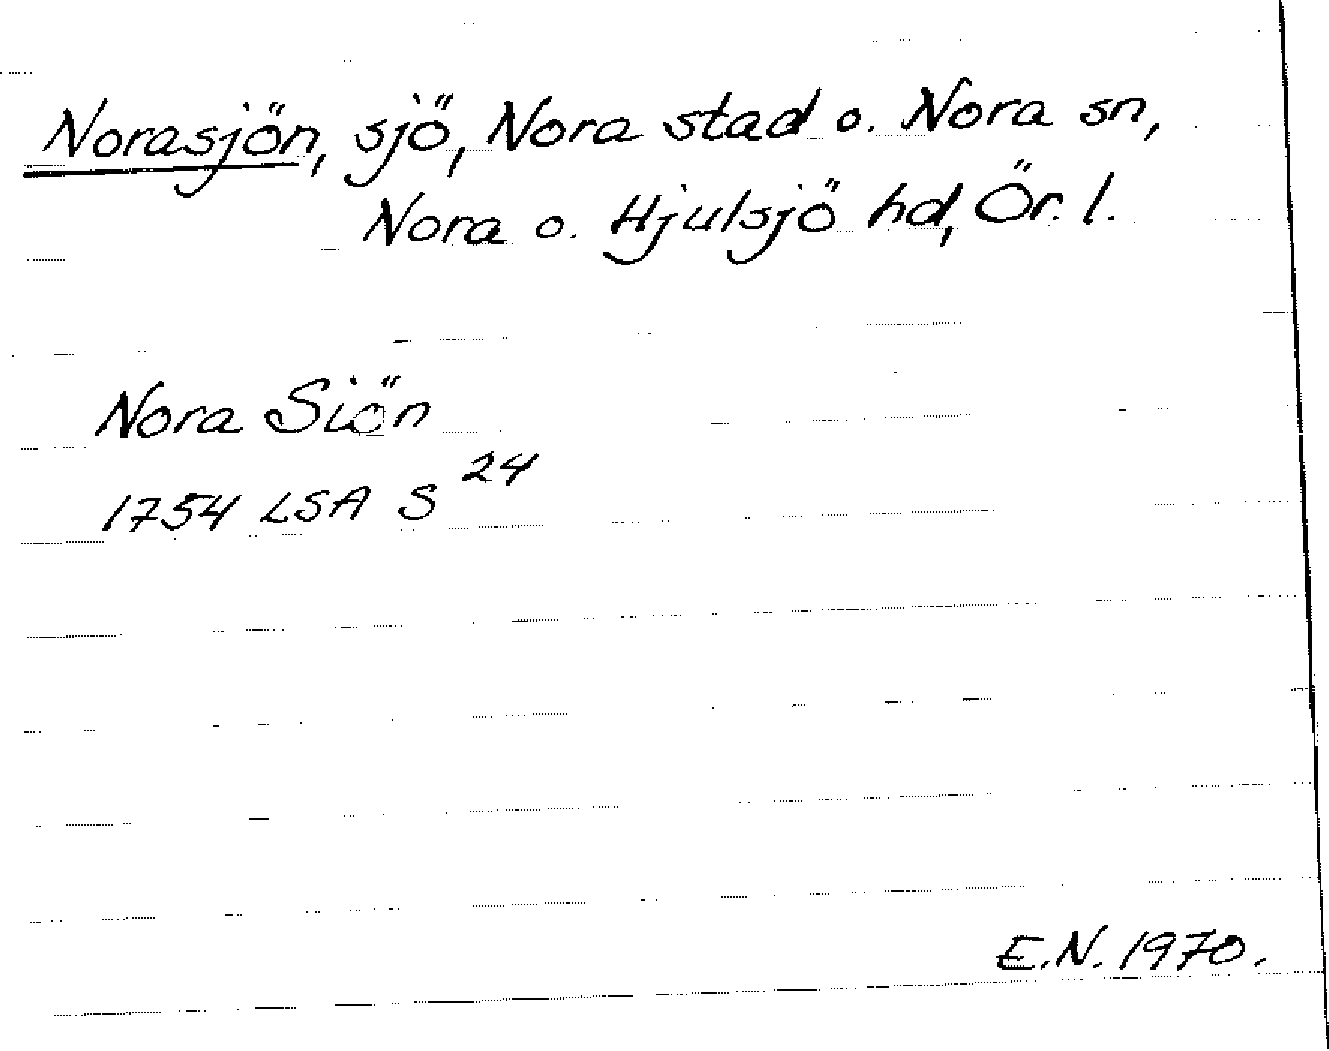 Norasjön, sjö, Nora stad o. Nora sn,
Nora o. Hjulsjö hd, Ör. l.
Nora Siön
1754 LSA S 24
E.N. 1970.